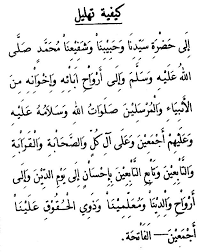 كيفية تهليل
إِلَى حَضْرَةِ سَيِّدِنَا وَحَبِيْبِنَا وَشَفِيْعِنَا مُحَمَّدٍ صَلَّى
اللهُ عَلَيْهِ وَسَلَّمَ وَإِلَى أَرْوَاحِ ابَائِهِ وَإِخْوَانِهِ مِنَ
الْأَنْبِيَاءِ وَالْمُرْسَلِيْنَ صَلَوَاتُ اللهِ وَسَلَامُهُ عَلَيْهِ
وَعَلَيْهِمْ أَجْمَعِيْنَ وَعَلَى آلِ كُلٍّ وَالصَّحَابَةِ وَالْقَرَابَةِ
وَالتَّابِعِيْنَ وَتَابِعِ التَّابِعِيْنَ بِإِحْسَانٍ إِلَى يَوْمِ الدِّيْنِ وَإِلَى
أَرْوَاحِ وَالِدِيْنَا وَمُعَلِّمِيْنَا وَذَوِي الْحُقُوْقِ عَلَيْنَا
أَجْمَعِيْنَ — الْفَاتِحَة.